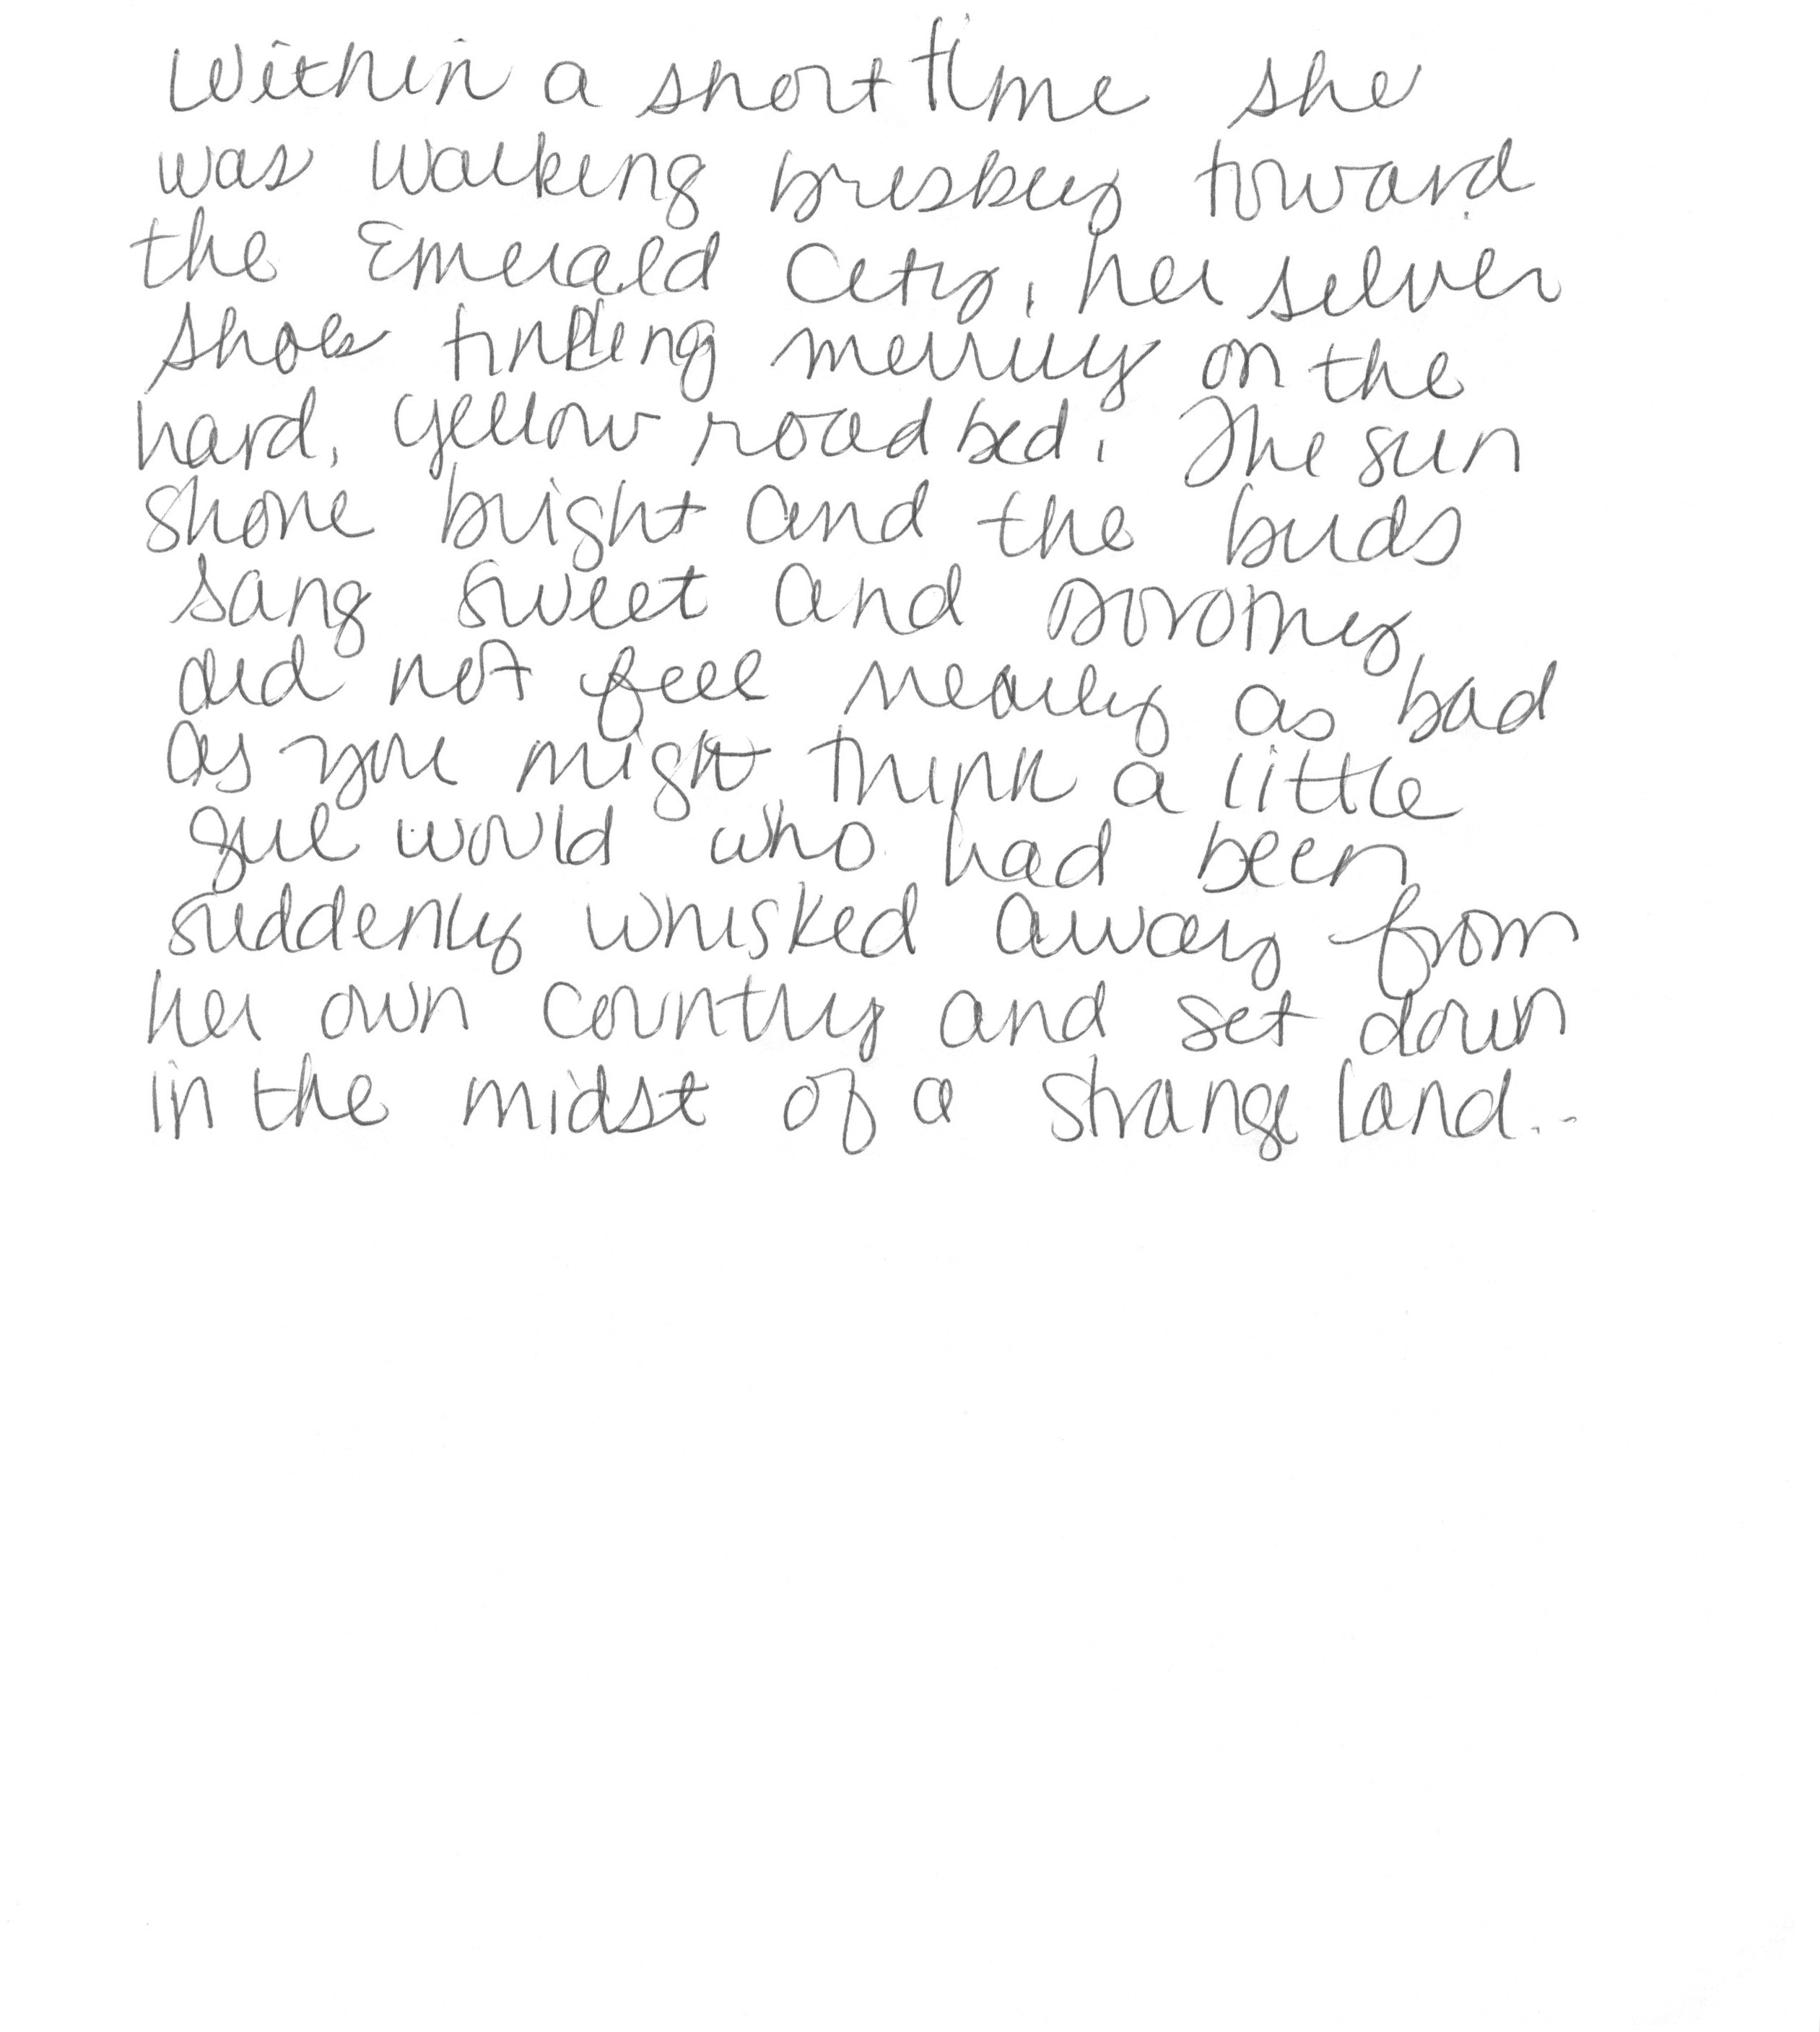 Within a short time she
was walking briskly toward
the Emerald City, her silver
shoes tinkling merrily on the
hard, yellow roadbed. The sun
shone bright and the birds
sang sweet and Dorothy
did not feel nearly as bad
as you might think a little
girl would who had been
suddenly whisked away from
her own country and set down
in the midst of a strange land...